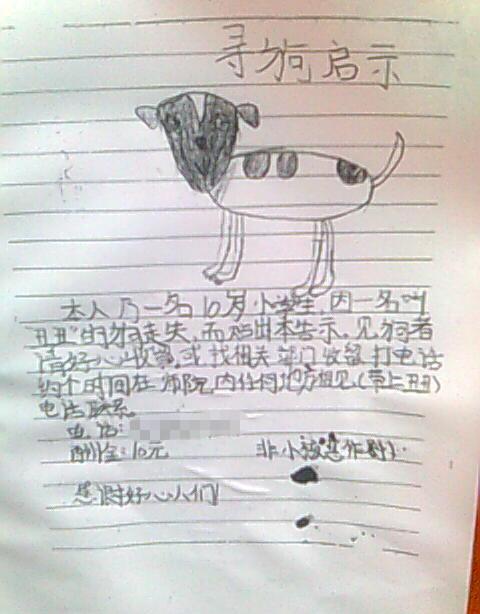 寻狗启示
本人乃一名10岁小学生,因一名叫
"丑丑"的狗走失,而贴出本告示,见狗者
请好心心收留,或找相关部门收留,打电话
约个时间在师院内任何地方相见(带上丑丑)
电话联系.
电话:
酬金:10元 非小孩恶作剧!
感谢好心人们!